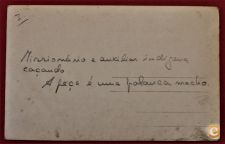 Missionário e auxiliar indígena
caçando
A peça é uma palanca macho.